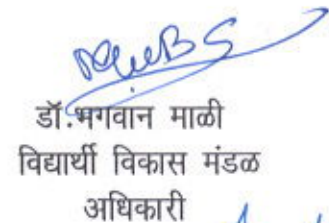 डॉ.भगवान माळी
विद्यार्थी विकास मंडळ
अधिकारी